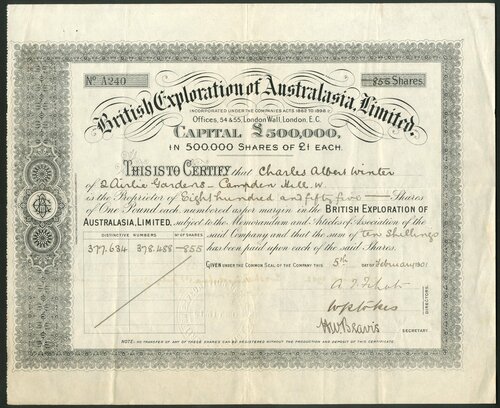 No A240
855 Shares.
British Exploration of Australasia, Limited.
INCORPORATED UNDER THE COMPANIES ACTS 1862 TO 1898
Offices, 54 & 55, London Wall, London, E.C.
CAPITAL £500,000,
IN 500,000 SHARES OF £1 EACH.
THIS IS TO CERTIFY that Charles Albert Winter
of 2 Airlie Gardens - Campden Hill. W.
is the Proprietor of Eight hundred and fifty five Shares
of One Pound each numbered as per margin in the BRITISH EXPLORATION OF
AUSTRALASIA, LIMITED, subject to the Memorandum and Articles of Association of the
said Company and that the sum of ten shillings
has been paid upon each of the said Shares.
DISTINCTIVE NUMBERS No OF SHARES
377.634 378.488 - 855
GIVEN UNDER THE COMMON SEAL OF THE COMPANY THIS 5th DAY OF February 1901
W P Stokes
DIRECTORS.
HW Beavis
SECRETARY.
NO TRANSFER OF ANY OF THESE SHARES CAN BE REGISTERED WITHOUT THE PRODUCTION AND DEPOSIT OF THIS CERTIFICATE.